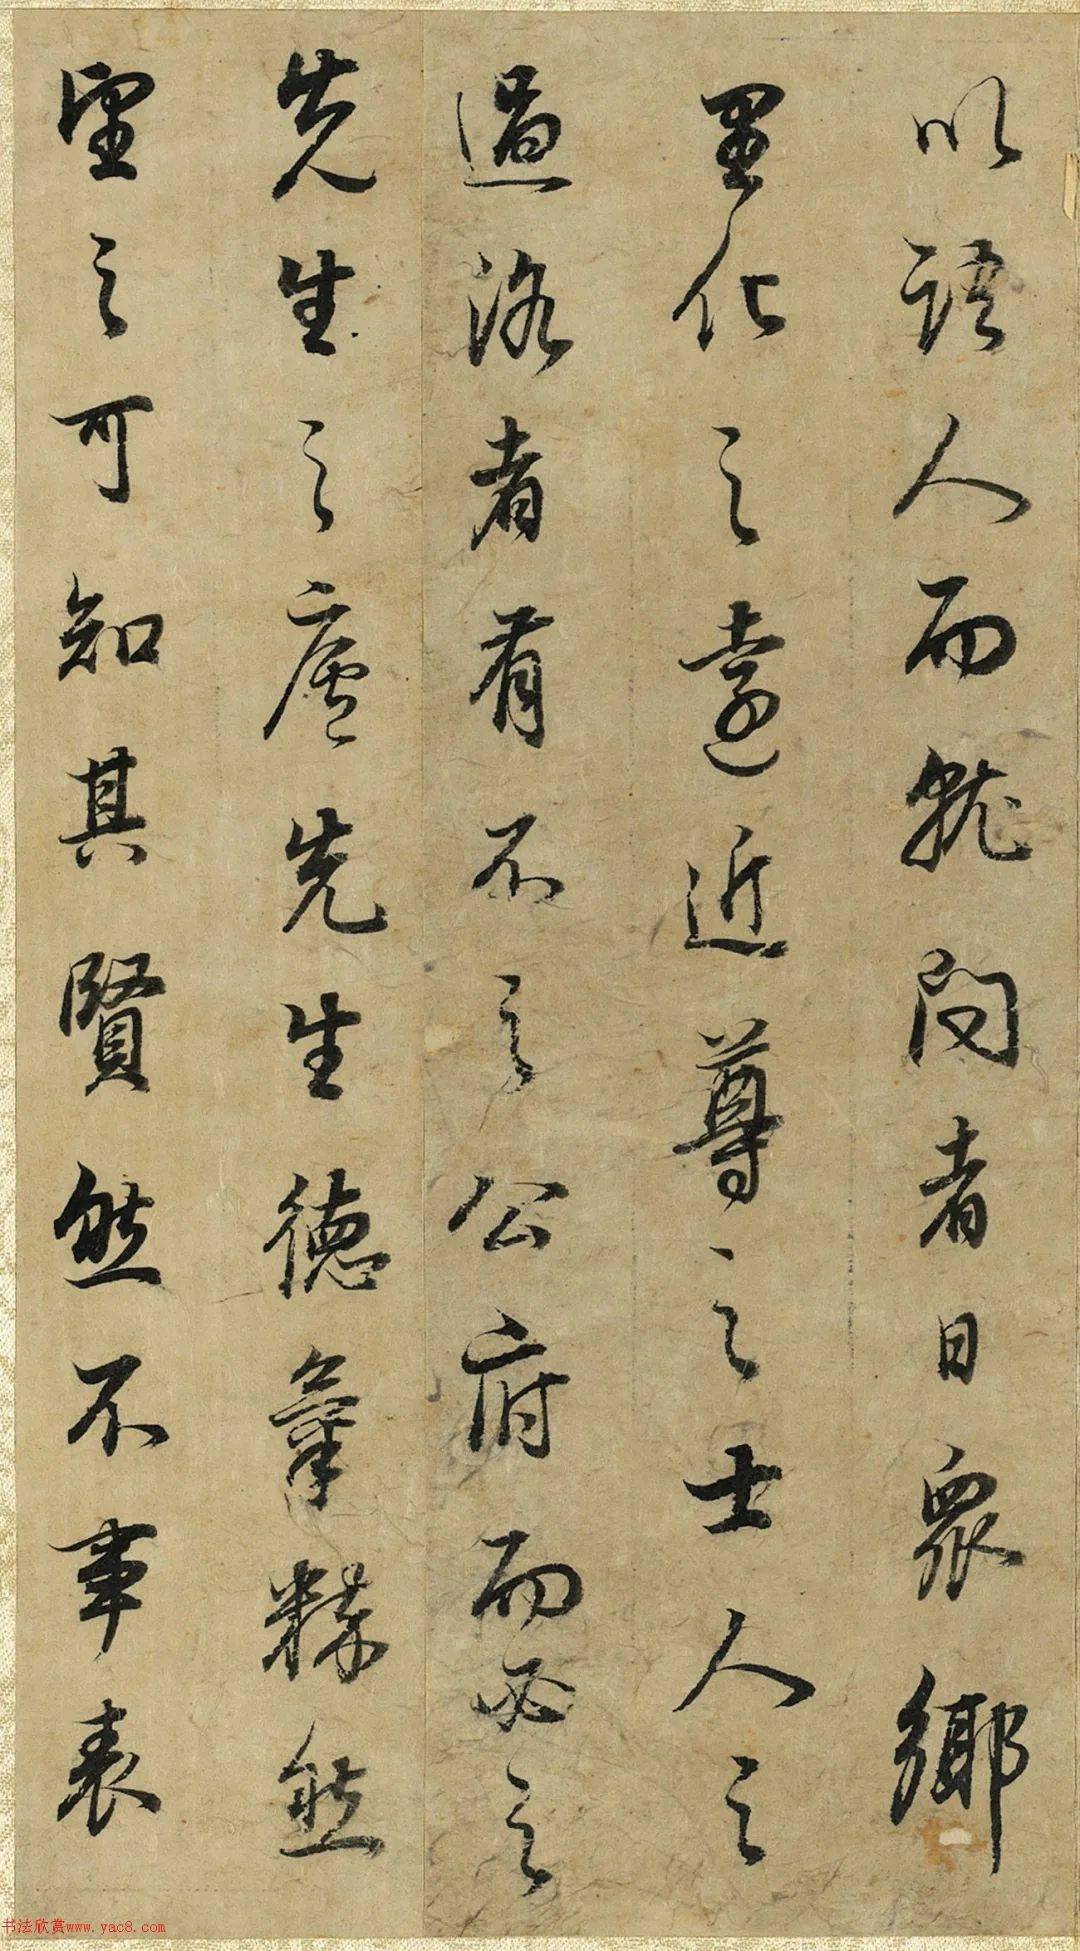 以語人而就問者日眾鄉
里化之遠近尊之士人之
過洛者有不之公府而必之
先生之廬先生德氣粹然
望之可知其賢然不事表
书法欣赏www.yac8.com